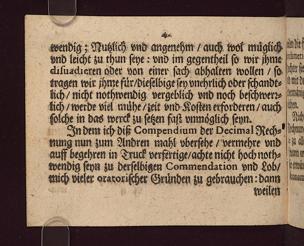 4.
wendig; Nutzlich vnd angenehm / auch wol müglich
vnd leicht zu thun seye: vnd im gegentheil so wir jhme
disuadieren oder von einer sach abhalten wollen / so
tragen wir jhme für / dieselbige sey vnehrlich oder schandt-
lich / nicht nothwendig vergeblich vnd noch beschwer-
lich / werde viel mühe / zeit vnd Kosten erforderen / auch
solche in das werck zu setzen fast vnmöglich seyn.
In dem ich diß Compendium der Decimal Rech-
nung nun zum Andren mahl vbersehe / vermehre vnd
auff begehren in Truck verfertige / achte nicht hoch noth-
wendig seyn zu derselbigen Commendation vnd Lob /
mich vieler oratorischer Gründen zu gebrauchen: dann
weilen